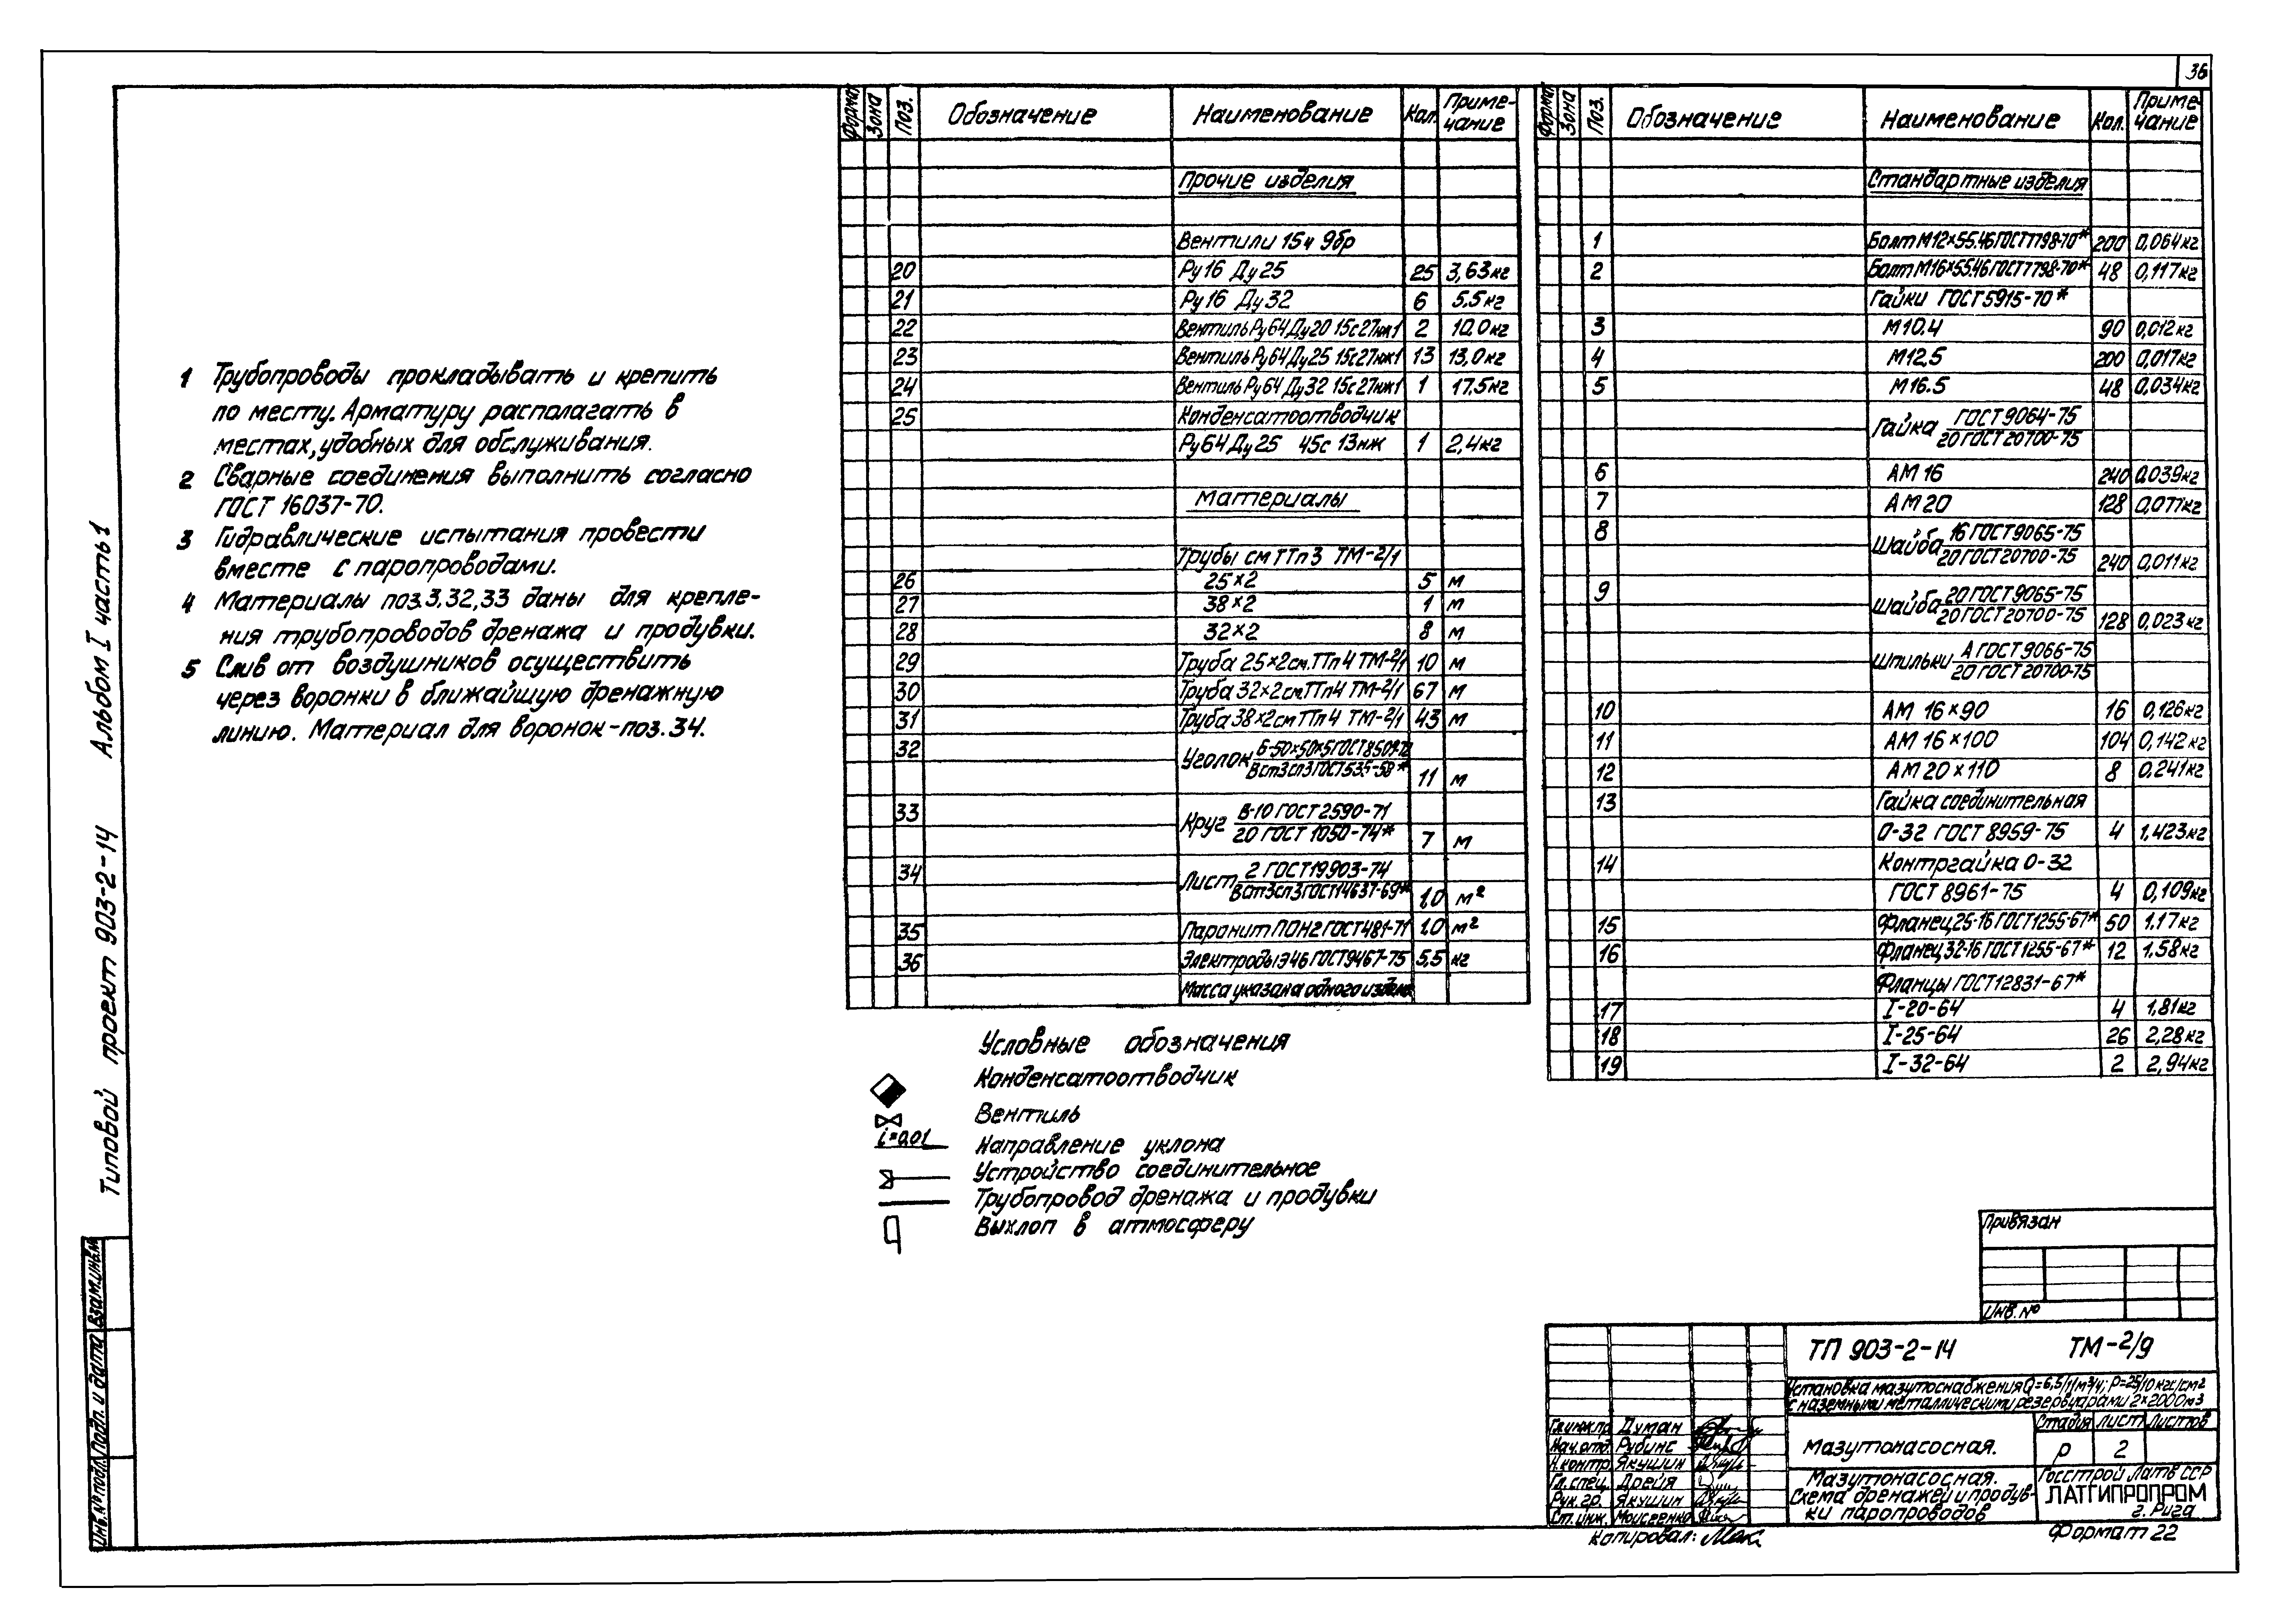 36
1 Трубопроводы прокладывать и крепить
по месту. Арматуру располагать в
местах, удобных для обслуживания.
2 Сварные соединения выполнить согласно
ГОСТ 16037-70.
3 Гидравлические испытания провести
вместе с паропроводами.
4 Материалы поз.3,32,33 даны для крепле-
ния трубопроводов дренажа и продувки.
5 Слив от воздушников осуществить
через воронки в ближайшую дренажную
линию. Материал для воронок-поз.34.
Формат Зона Поз. Обозначение Наименование Кол. Приме-
чание
Прочие изделия
Вентили 15ч 9бр
20 Ру16 Ду25 25 3,63кг
21 Ру16 Ду32 6 5,5кг
22 Вентиль Ру64 Ду20 15с27нж1 2 10,0кг
23 Вентиль Ру64 Ду25 15с27нж1 13 13,0кг
24 Вентиль Ру64 Ду32 15с27нж1 1 17,5кг
25 Конденсатоотводчик
Ру64 Ду25 45с 13нж 1 2,4кг
Материалы
Трубы см ТТп3 ТМ-2/1
26 25×2 5 м
27 38×2 1 м
28 32×2 8 м
29 Труба 25×2см.ТТп4 ТМ-2/1 10 м
30 Труба 32×2смТТп4 ТМ-2/1 67 м
31 Труба 38×2смТТп4 ТМ-2/1 43 м
32 Уголок Б-50×50×5ГОСТ8509-72
Вст3сп3ГОСТ535-58* 11 м
33 Круг В-10 ГОСТ2590-71
20 ГОСТ 1050-74* 7 м
34 Лист 2 ГОСТ19903-74
Вст3сп3ГОСТ14637-69* 1,0 м²
35 Паронит ПОН2 ГОСТ481-71 1,0 м²
36 Электроды Э46 ГОСТ9467-75 5,5 кг
Масса указана одного издел.
Формат Зона Поз. Обозначение Наименование Кол. Приме-
чание
Стандартные изделия
1 Болт М12×55.46ГОСТ7798-70* 200 0,064кг
2 Болт М16×55.46ГОСТ7798-70* 48 0,117кг
Гайки ГОСТ5915-70*
3 М10.4 90 0,012кг
4 М12.5 200 0,017кг
5 М16.5 48 0,034кг
Гайка ГОСТ9064-75
20 ГОСТ20700-75
6 АМ 16 240 0,039кг
7 АМ 20 128 0,077кг
8 Шайба 16 ГОСТ9065-75
20ГОСТ20700-75 240 0,011кг
9 Шайба 20 ГОСТ9065-75
20ГОСТ20700-75 128 0,023кг
Шпильки А ГОСТ9066-75
20 ГОСТ20700-75
10 АМ 16×90 16 0,126кг
11 АМ 16×100 104 0,142кг
12 АМ 20×110 8 0,241кг
13 Гайка соединительная
О-32 ГОСТ 8959-75 4 1,423кг
14 Контргайка О-32
ГОСТ 8961-75 4 0,109кг
15 Фланец25-16ГОСТ1255-67* 50 1.17кг
16 Фланец32-16ГОСТ1255-67* 12 1.58кг
Фланцы ГОСТ12831-67*
17 I-20-64 4 1,81кг
18 I-25-64 26 2,28кг
19 I-32-64 2 2,94кг
Условные обозначения
Конденсатоотводчик
Вентиль
i=0,01 Направление уклона
Устройство соединительное
Трубопровод дренажа и продувки
Выхлоп в атмосферу
Типовой проект 903-2-14 Альбом I часть 1
Инв.№подл. Подп. и дата Взам.инв.№
Привязан
Инв.№
ТП 903-2-14 ТМ-2/9
Установка мазутоснабжения Q=6,5/11м³/ч; Р=25/10кгс/см²
с наземными металлическими резервуарами 2×2000м³
Гл.инж.пр. Думан
Нач.отд. Рубинс
Н.контр. Якушин
Гл.спец. Дрейя
Рук.гр. Якушин
Ст.инж. Моисеенко
Мазутонасосная.
Стадия Лист Листов
Р 2
Мазутонасосная.
Схема дренажей и продув-
ки паропроводов
Госстрой Латв ССР
ЛАТГИПРОПРОМ
г. Рига
Копировал:
Формат 22